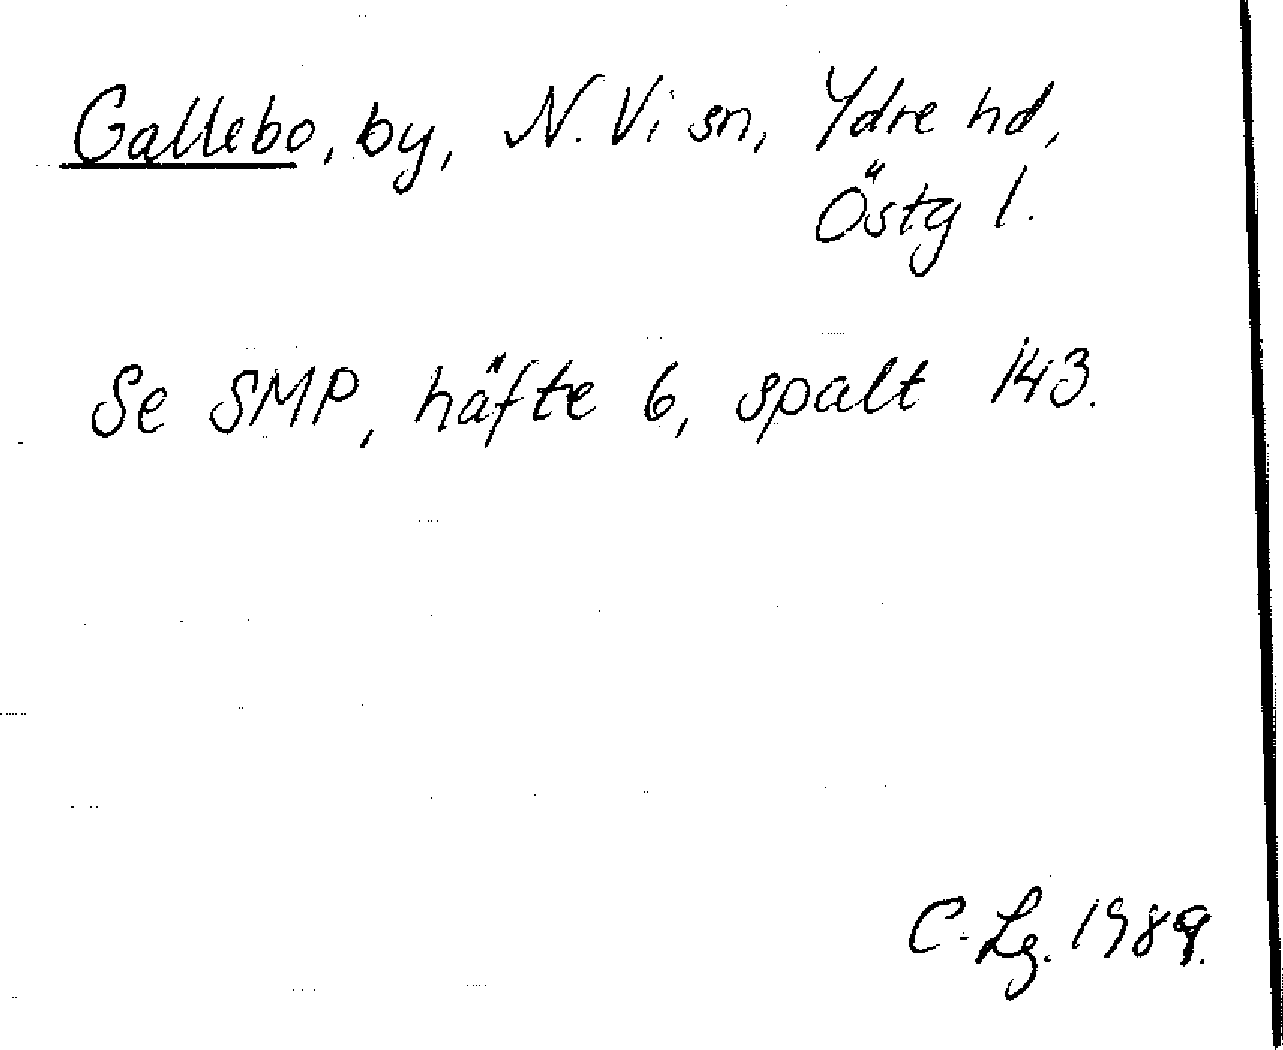 Gallebo, by, N. Vi sn, Ydre hd,
Östg l.
Se SMP, häfte 6, spalt 143.
C. Lg. 1989.